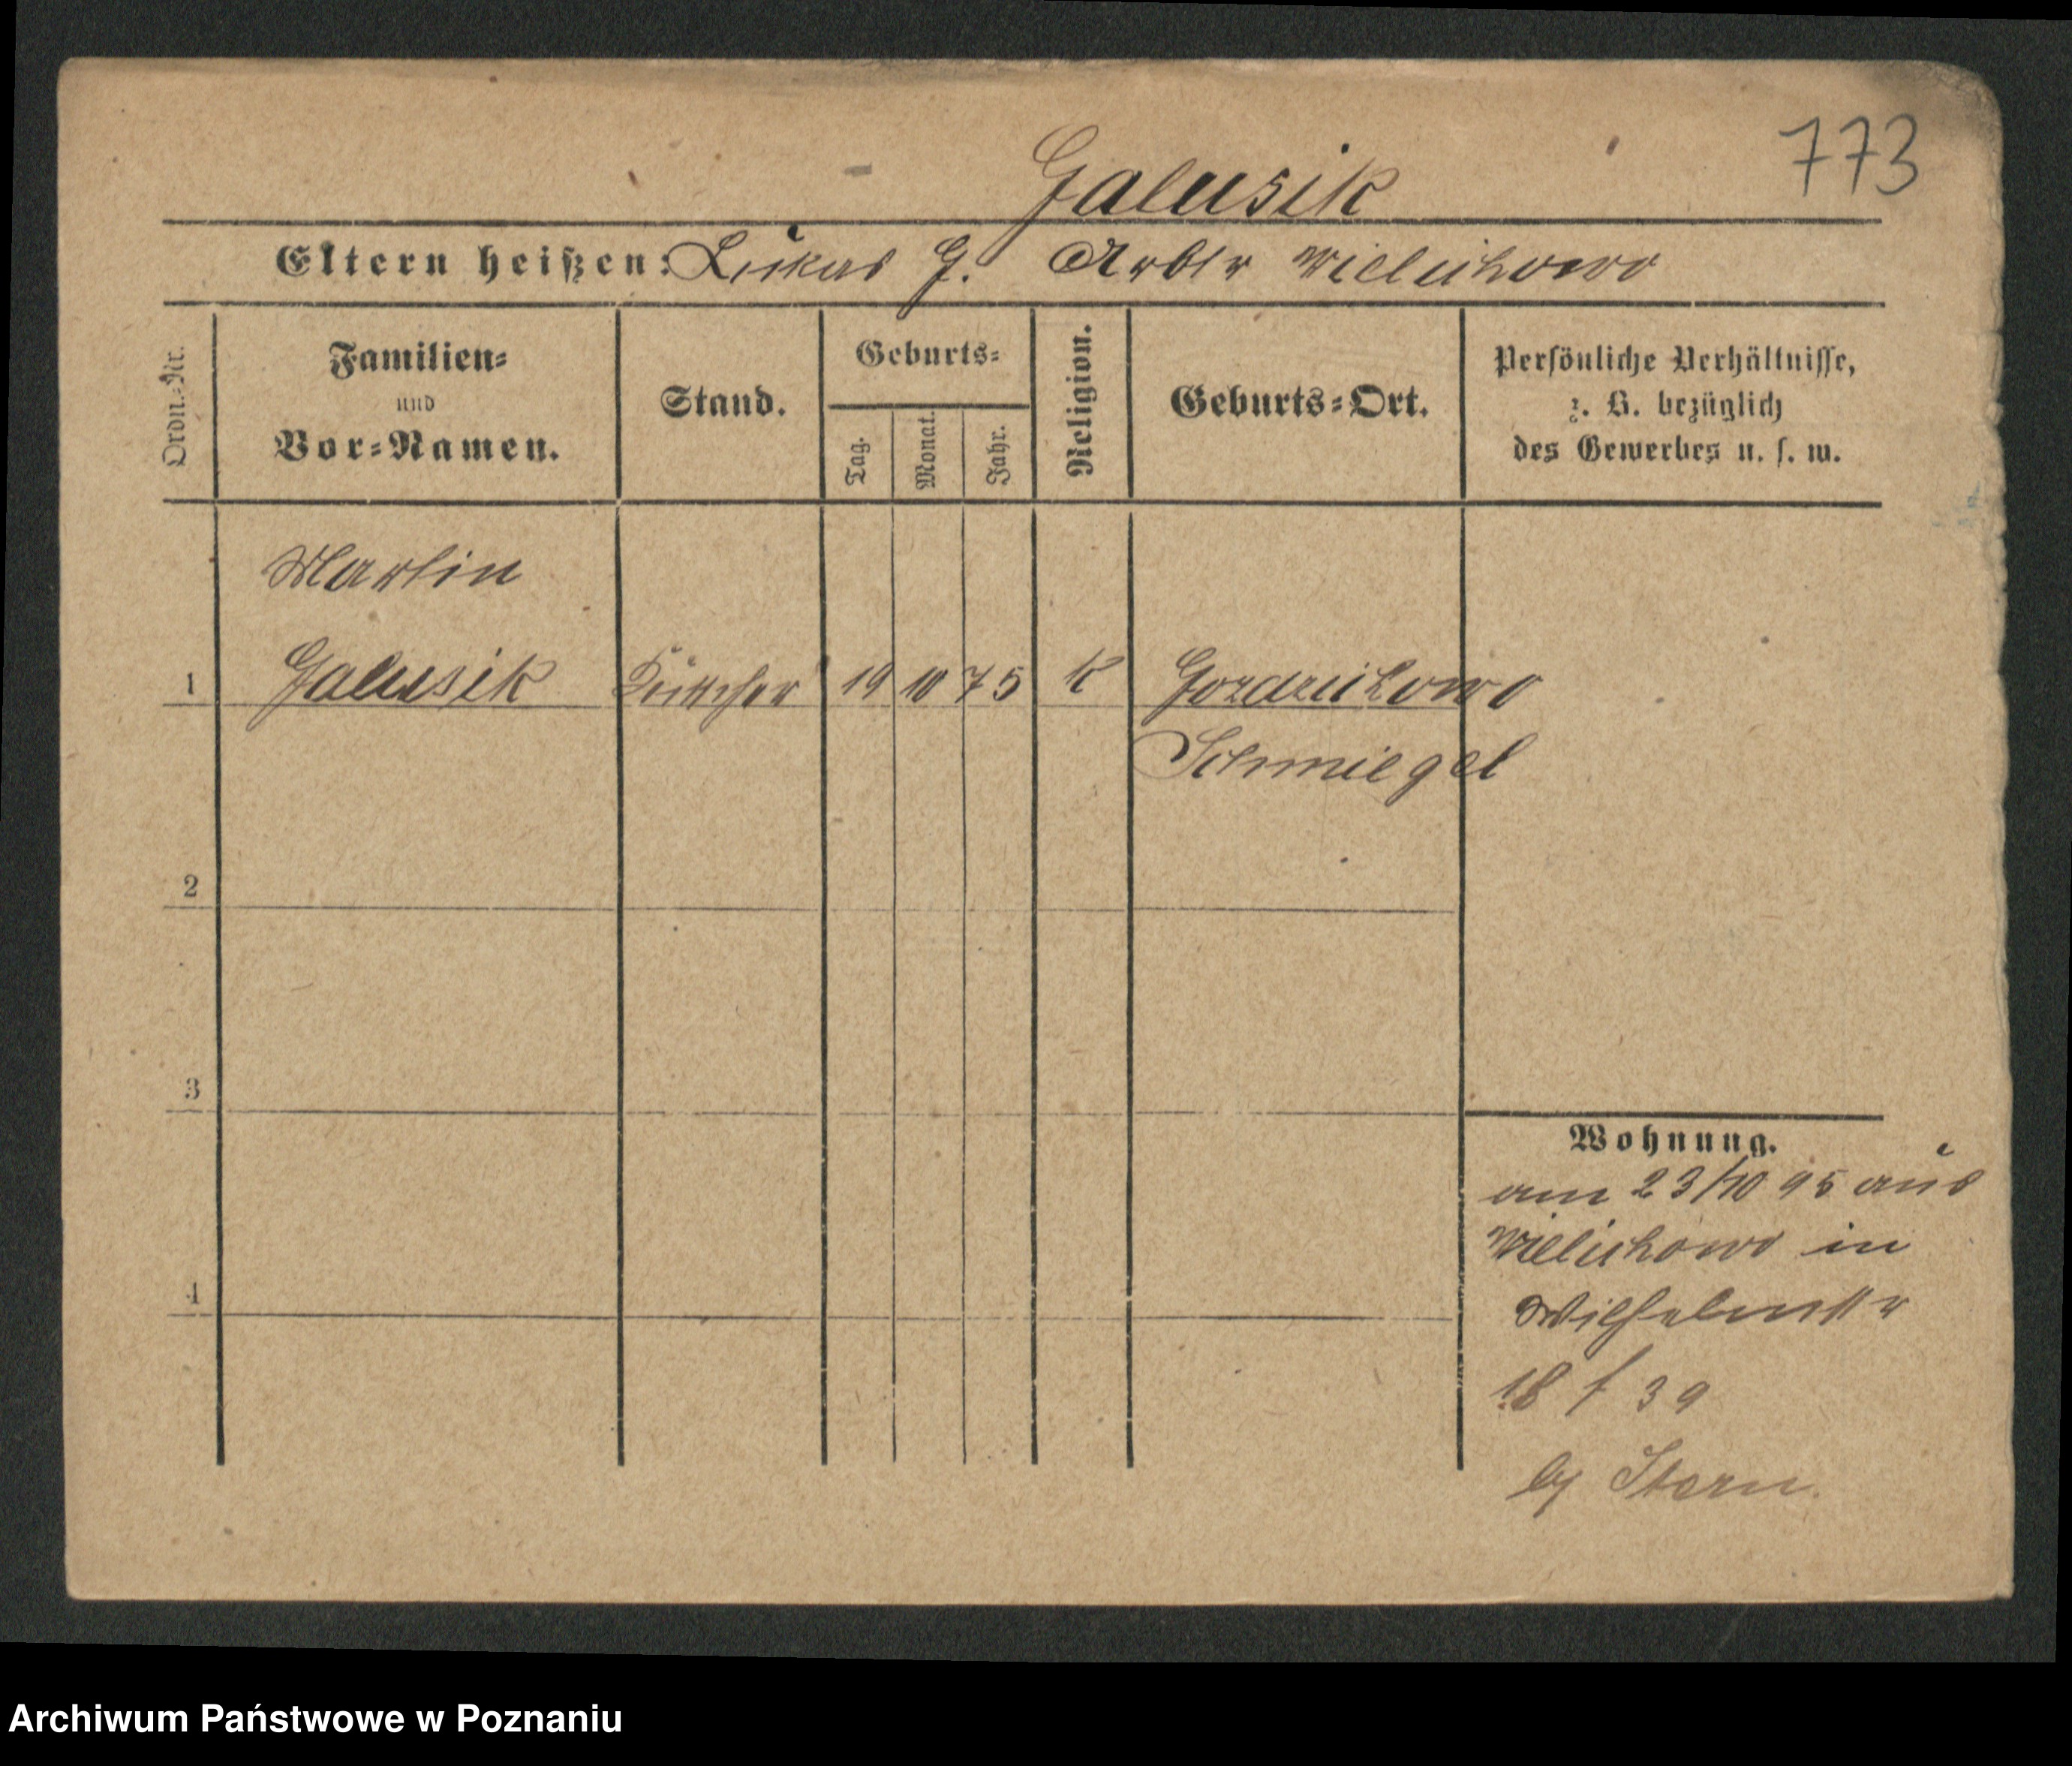 773
Galusik
Eltern heißen: Lukas G. Arbtr Wielichowo
Ordn.-Nr.
Familien-
und
Vor-Namen.
Stand.
Geburts-
Tag.
Monat.
Jahr.
Religion.
Geburts-Ort.
Persönliche Verhältnisse,
z. B. bezüglich
des Gewerbes u. s. w.
Martin
1 Galusik 19 10 75 K Gozdzichowo
Schmiegel
2
3
4
Wohnung.
am 23/10 95 aus
Wielichowo in
Wilhelmstr
18 f 39
by Stern.
Archiwum Państwowe w Poznaniu